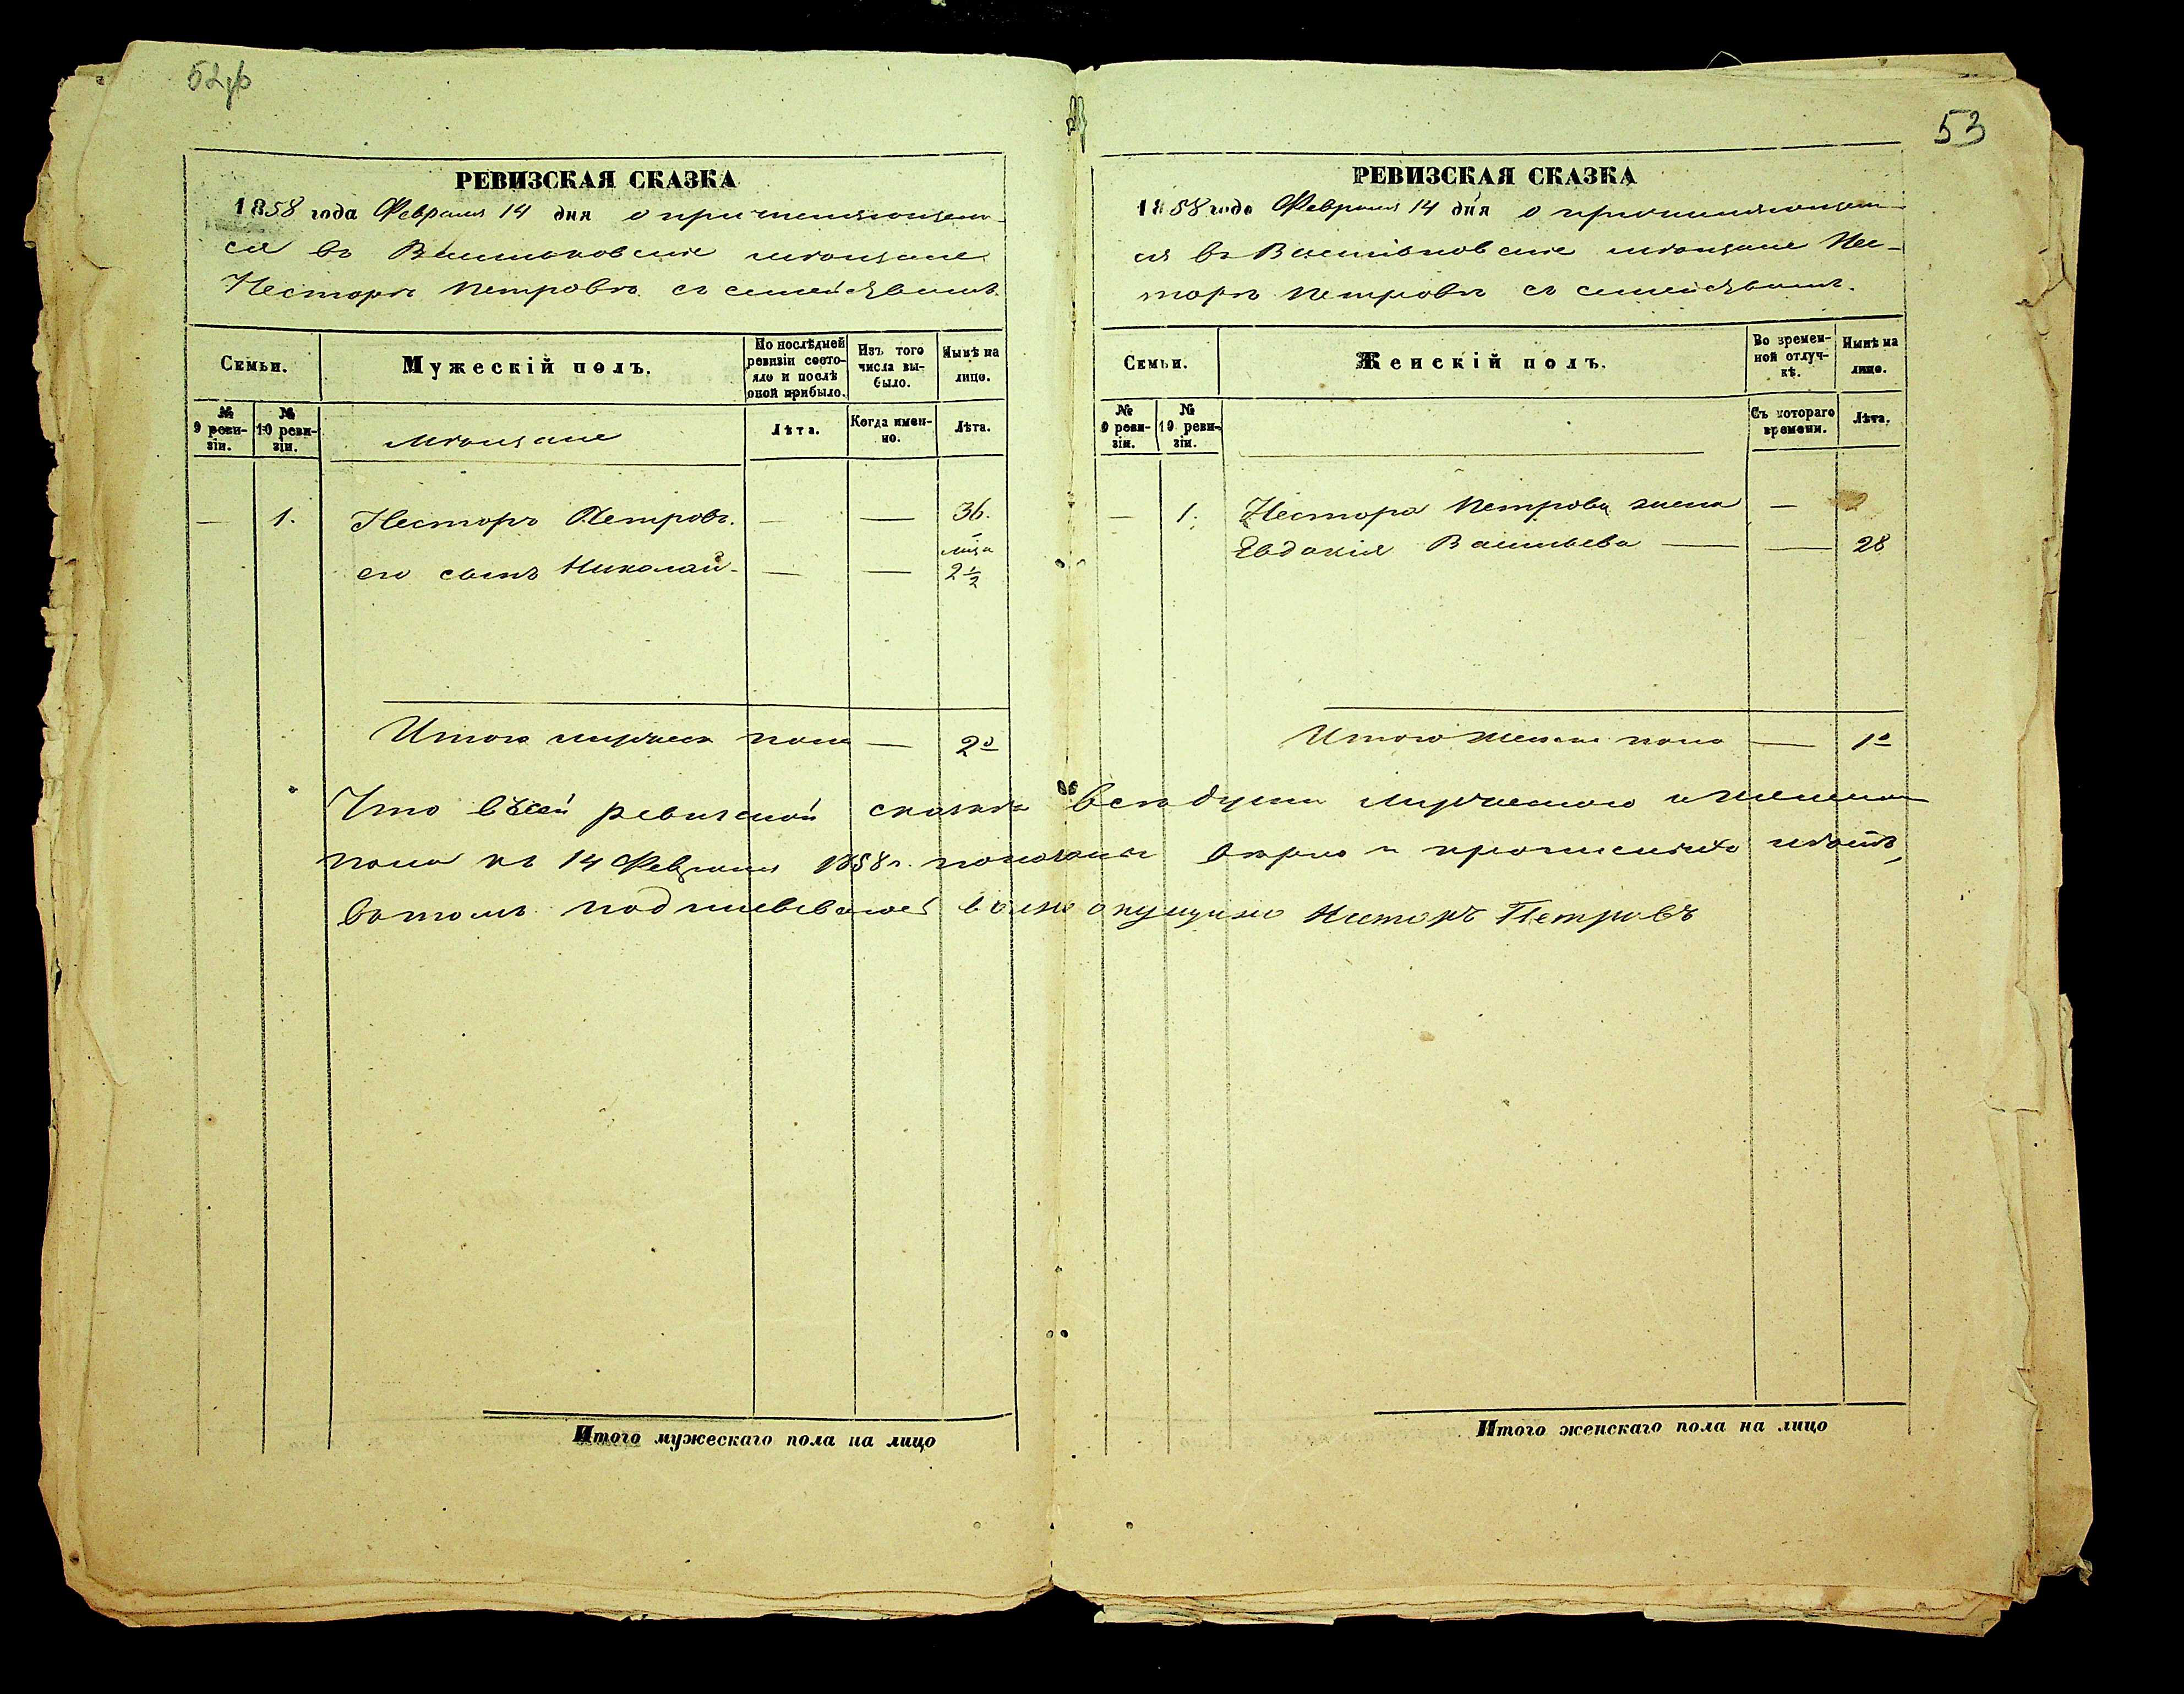 53
РЕВИЗСКАЯ СКАЗКА
1858 года Февраля 14 дня о причисляющем-
ся въ мѣщане
Несторѣ Петровѣ съ семействомъ.
Семьи.
Мужескій полъ.
По послѣдней ревизіи состояло и послѣ оной прибыло.
Изъ того числа выбыло.
Нынѣ на лицо.
№ 9 ревизіи.
№ 10 ревизіи.
мѣщане
Лѣта.
Когда именно.
Лѣта.
— 1. Несторъ Петровъ. — — 36.
его сынъ Николай — — 2½
Итого мужеска пола — 2
РЕВИЗСКАЯ СКАЗКА
1858 года Февраля 14 дня о причисляющем-
ся въ мѣщане Нес-
торѣ Петровѣ съ семействомъ.
Семьи.
Женскій полъ.
Во временной отлучкѣ.
Нынѣ на лицо.
№ 9 ревизіи.
№ 10 ревизіи.
Съ котораго времени.
Лѣта.
— 1. Нестора Петрова жена —
Евдокія Васильева — — 28
Итого женска пола — 1
Что въ сей ревизской сказкѣ всѣ души мужескаго и женскаго
пола къ 14 Февраля 1858 г. показаны вѣрно и
въ томъ подписываюсь Несторъ Петровъ
Итого мужескаго пола на лицо
Итого женскаго пола на лицо